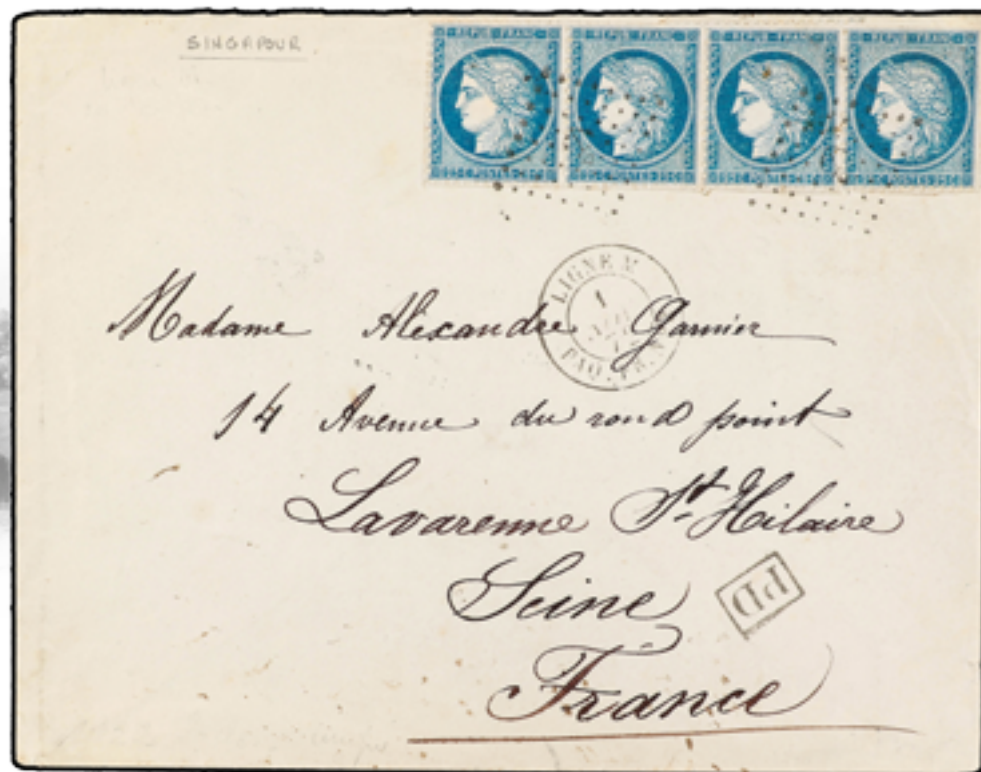 SINGAPOUR
REPUB FRANC REPUB FRANC REPUB FRANC REPUB FRANC
POSTES POSTES POSTES POSTES
LIGNE N
1
PAQ. FR. N
Madame Alexandre Garnier
14 Avenue du rond point
Lavarenne St Hilaire
Seine
PD
France